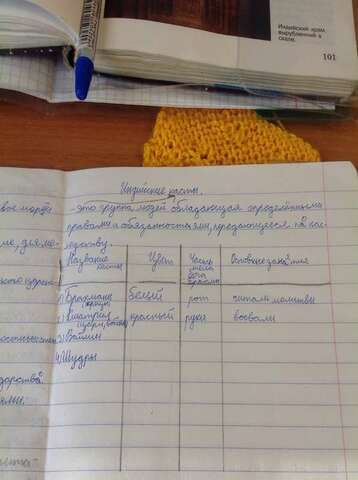 Индийский храм,
вырубленный в
скале.
101
Индийские касты.
- это группа людей обладающая определёнными
правами и обязанностями, передающееся по нас-
ледству.
Название касты | Цвет | Часть тела бога Брахмы | Основные занятия
1) Брахманы жрецы | белый | рот | читали молитвы
2) Кшатрии цари, воины | красный | руки | воевали
3) Вайшьи
4) Шудры